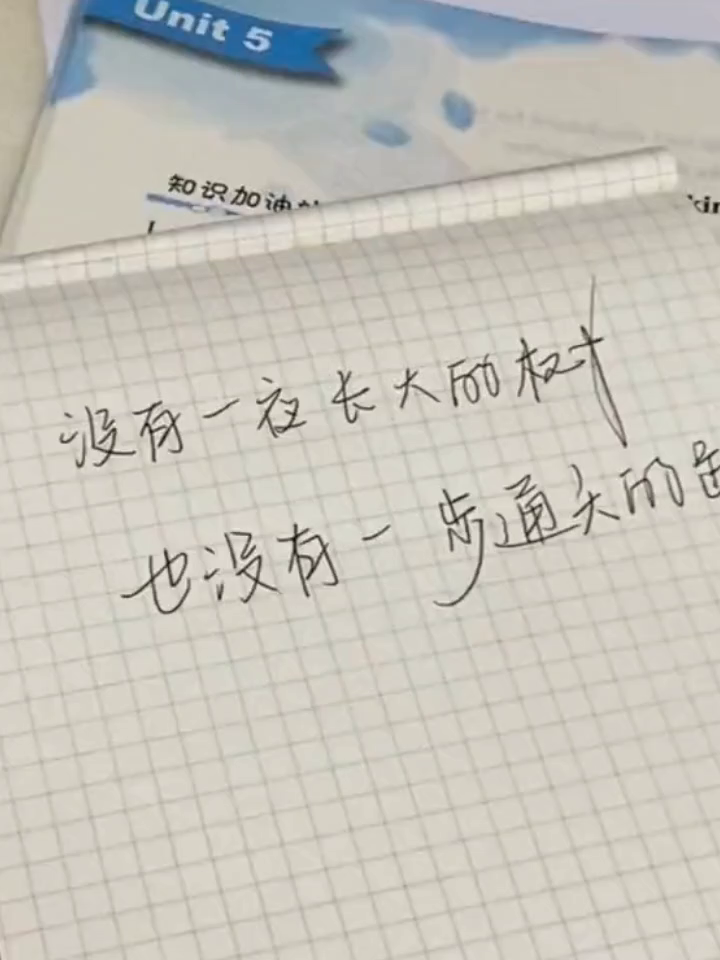 Unit 5
知识加油
没有一夜长大的树
也没有一步通头的